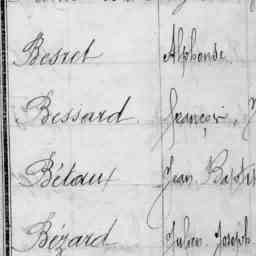 Besret Alphonse
Bessard François
Bétaux Jean Bapt
Bézard Julien Joseph